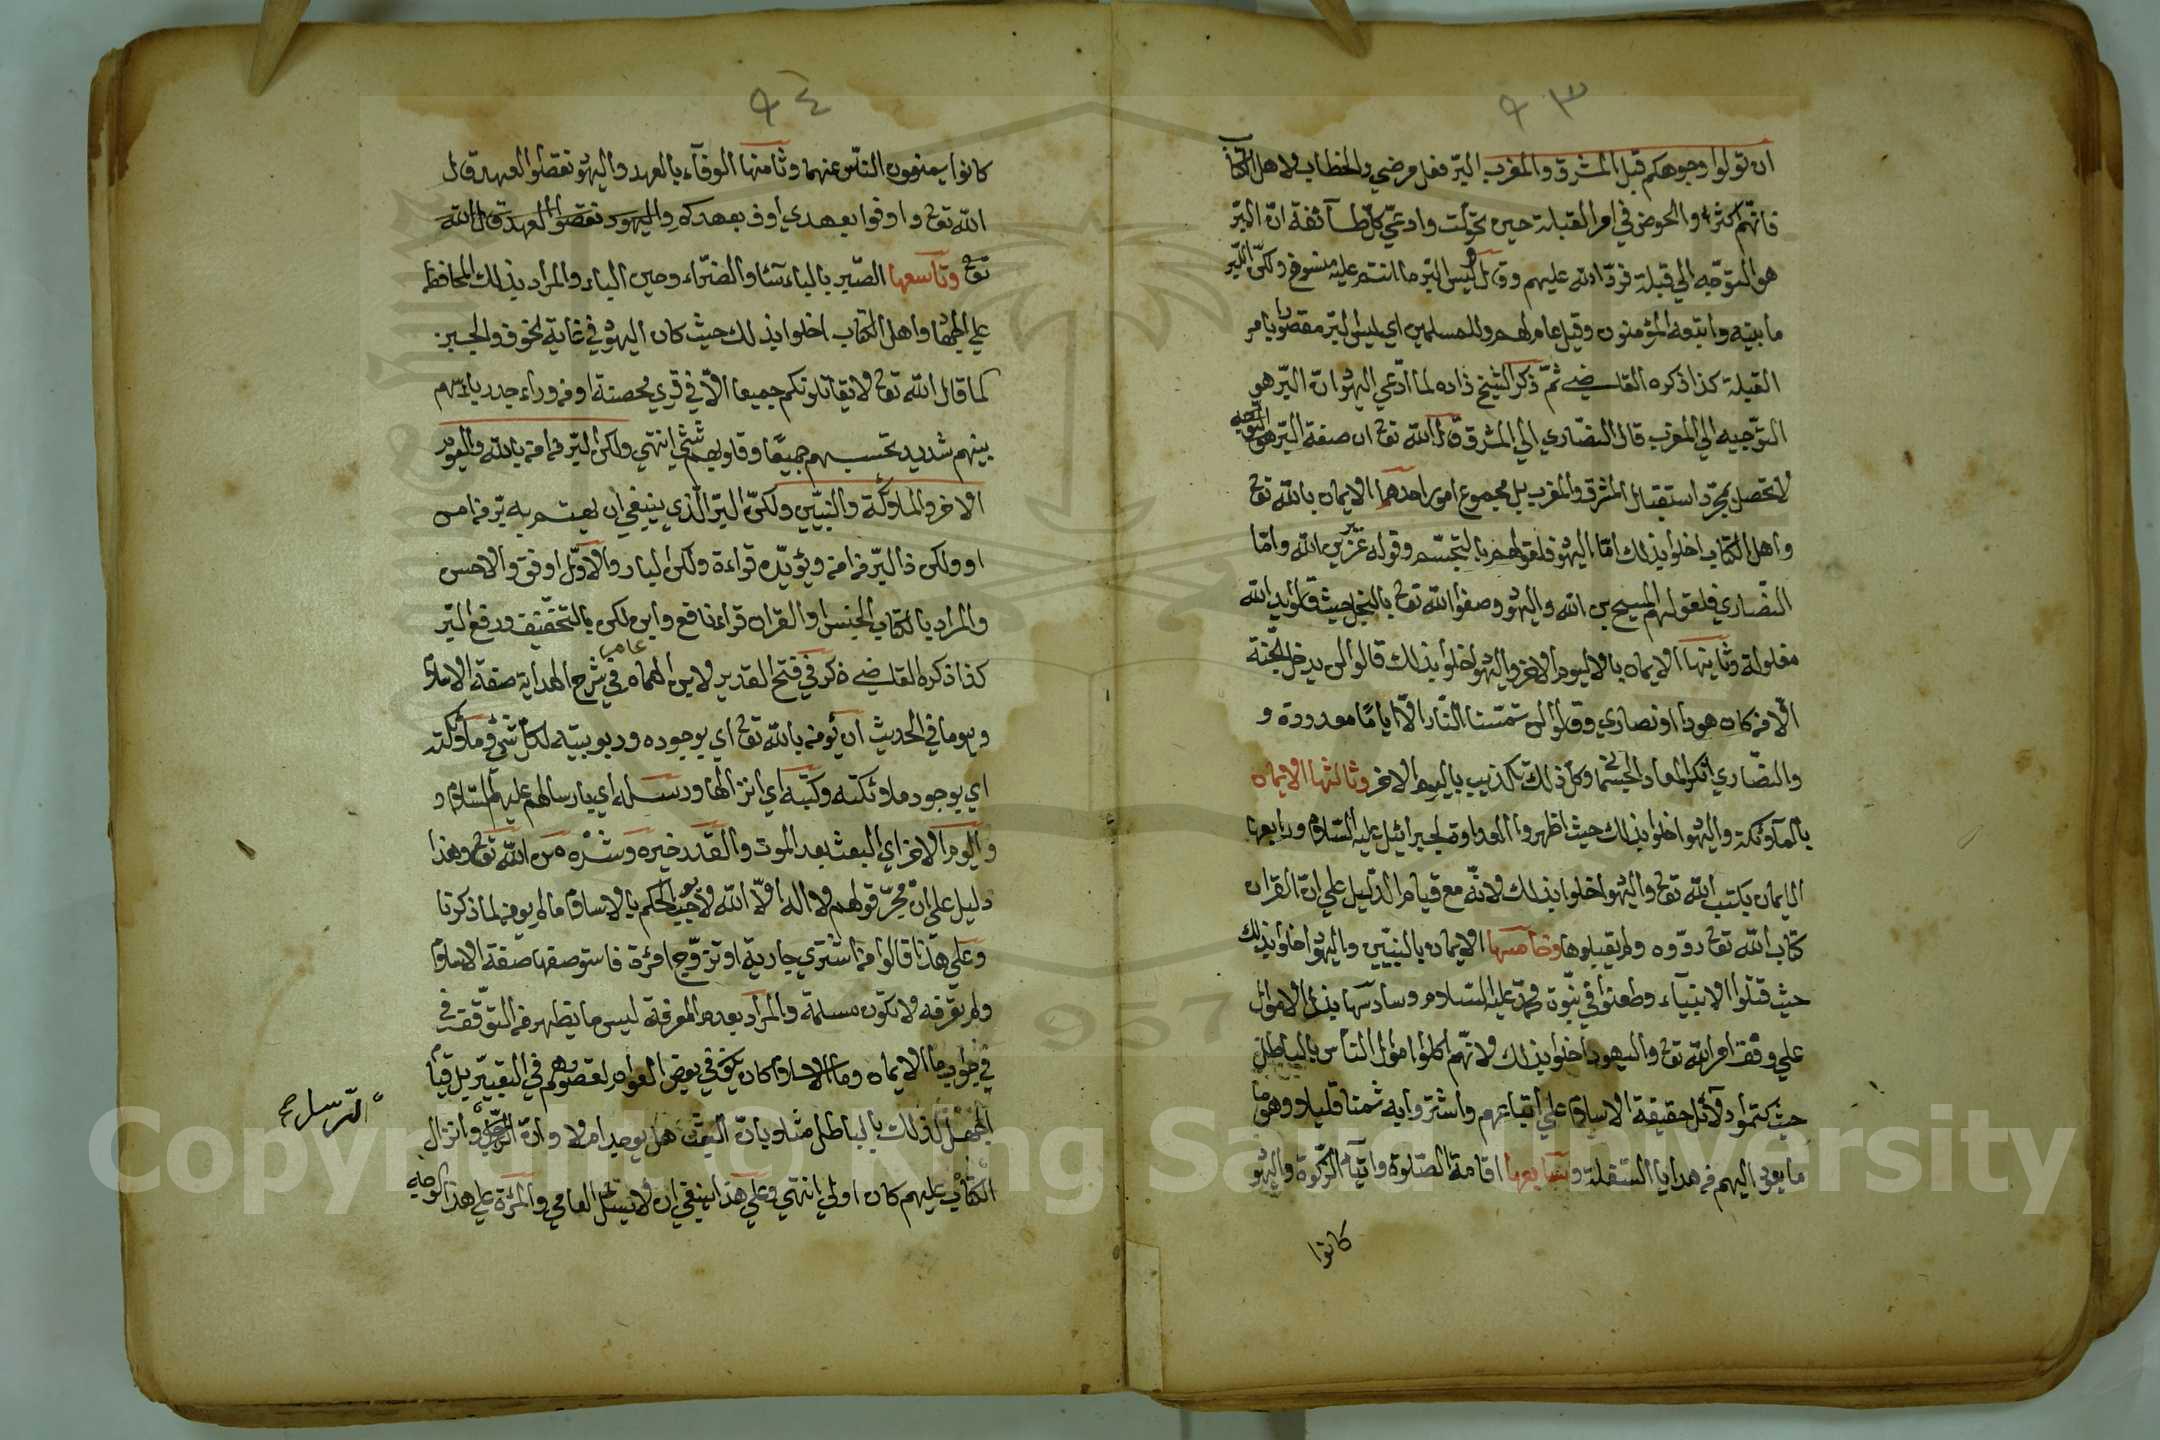 ٩٣
ان تولوا وجوهكم قبل المشرق والمغرب البر فعل مرضي والخطاب لاهل الكتاب
فانهم اكثروا الخوض في امر القبلة حين تحولت وادعي كل طائفة ان البر
هو التوجه الي قبلة فرد الله عليهم وقال ليس البر ما انتم عليه منسوخ ولكن البر
ما بينه واتبعه المؤمنون وقيل عام لهم وللمسلمين اي ليس البر مقصورا بامر
القبلة كذا ذكره القاضي ثم ذكر الشيخ زاده لما ادعي اليهود ان البر هو
التوجيه الي المغرب قال النصاري الي المشرق قال الله تع ان صفة البر هو التوجه
لا تحصل بمجرد استقبال المشرق والمغرب بل مجموع امور احدهما الايمان بالله تع
واهل الكتاب اخلوا بذلك اما اليهود فلقولهم بالتجسم وقوله عزير بن الله واما
النصاري فلقولهم المسيح بن الله واليهود وصفوا الله تع بالبخل حيث قالوا يد الله
مغلولة وثانيها الايمان بالاليوم الاخر واليهود اخلوا بذلك قالوا لن يدخل الجنة
الا من كان هودا او نصاري وقالوا لن تمسنا النار الا اياما معدودة و
والنصاري انكر المعاد الجسماني وكل ذلك تكذيب باليوم الاخر وثالثها الايمان
بالملائكة واليهود اخلوا بذلك حيث اظهروا العداوة لجبرائيل عليه السلام ورابعها
الايمان بكتب الله تع واليهود اخلوا بذلك لانه مع قيام الدليل علي ان القران
كتاب الله تع ردوه ولم يقبلوها وخامسها الايمان بالنبيين واليهود اخلوا بذلك
حيث قتلوا الانبياء وطعنوا في نبوة محمد عليه السلام وسادسها بذل الاموال
علي وفق امر الله تع واليهود اخلوا بذلك لانهم اكلوا اموال الناس بالباطل
حيث كتموا دلائل حقيقة الاسلام علي اتباعهم واشتروا به ثمنا قليلا وهو ما
ما يعود اليهم من هدايا السفلة وسابعها اقامة الصلوة وايتاء الزكوة واليهود
كانوا
٩٤
كانوا يمنعون الناس عنهما وثامنها الوفاء بالعهد واليهود نقضوا العهد قال
الله تع واوفوا بعهدي اوف بعهدكم واليهود نقضوا العهد قال الله
تع وتاسعها الصبر بالباساء والضراء وحين الباس والمراد بذلك المحافظة
علي الجهاد واهل الكتاب اخلوا بذلك حيث كان اليهود في غاية الخوف والجبن
كما قال الله تع لا يقاتلونكم جميعا الا في قري محصنة او من وراء جدر باسهم
بينهم شديد تحسبهم جميعا وقلوبهم شتي انتهي ولكن البر من امن بالله واليوم
الاخر والملائكة والنبيين ولكن البر الذي ينبغي ان يهتم به بر من امن
او ولكن ذا البر من امن ويؤيده قراءة ولكن البار والاول اوفق والاحسن
والمراد بالكتاب الجنس او القران قراء نافع وابن عامر لكن بالتخفيف ورفع البر
كذا ذكره القاضي ذكر في فتح القدير لابن الهمام في شرح الهداية صفة الاسلام
وهو ما في الحديث ان تؤمن بالله تع اي بوجوده وربوبيته لكل شيء وملائكته
اي بوجود ملائكته وكتبه اي انزالها ورسله اي بارسالهم عليهم السلام و
واليوم الاخر اي البعث بعد الموت والقدر خيره وشره من الله تع وهذا
دليل علي ان مجرد قولهم لا اله الا الله لا يوجب الحكم بالاسلام ما لم يؤمن لما ذكرنا
وعلي هذا قالوا من اشتري جارية او تزوج امرئة فاستوصفها صفة الاسلام
ولم تعرفه لا تكون مسلمة والمراد بعدم المعرفة ليس ما يظهر من التوقف في
في جواب ما الايمان وما الاسلام كما يكون في بعض العوام لقصورهم في التعبير بل قيام
الجهل لذلك بالباطل مثلا بان البعث هل يوجد ام لا وان الرسل وانزال
الكتب عليهم كان او لا انتهي وعلي هذا ينبغي ان لا يسئل العامي والمرئة علي هذا الوجه